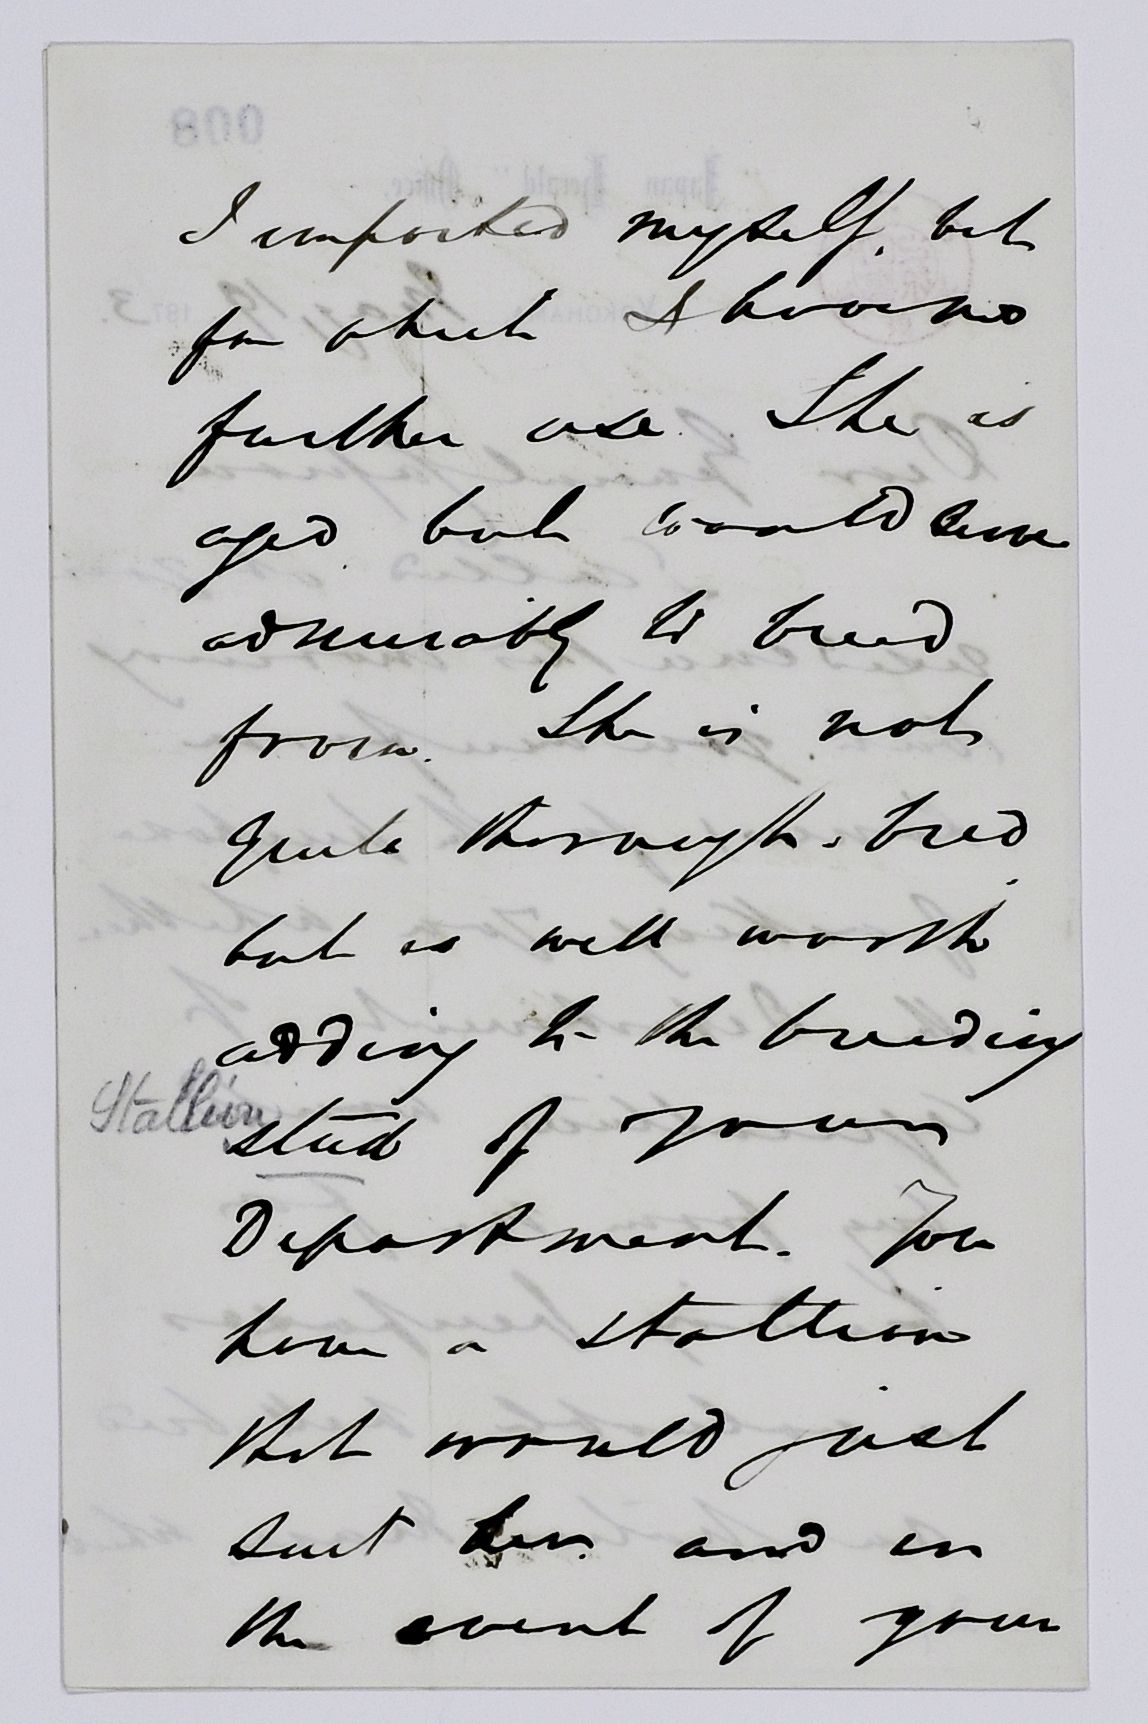 I imported myself, but
for which I have no
further use. She is
aged but would serve
admirably to breed
from. She is not
quite thorough-bred
but is well worth
adding to the breeding
Stallion
stud of your
Department. You
have a stallion
that would just
suit her and in
the event of your